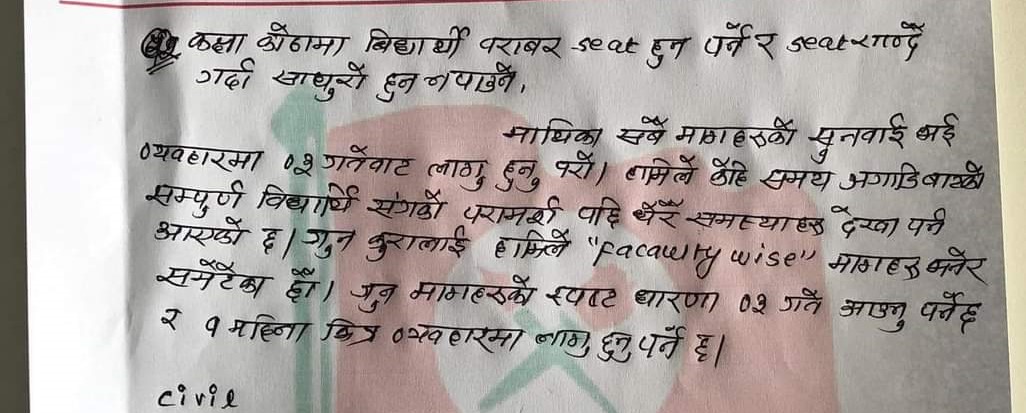 कक्षा कोठामा बिद्यार्थी वराबर seat हुन पर्ने र seat राख्दै
गर्दा साधुरो हुन नपाउने,
माथिका सबै मागहरुको सुनवाई भई
व्यवहारमा ०२ गतेवाट लागु हुनु परो। हामिले केहि समय अगाडि बाटको
सम्पुर्ण विद्यार्थि संगको परामर्श पछि धेरै समस्याहरु देखा पर्न
आएको छ। जुन कुरालाई हामिले "facawlty wise" मागहरु भनेर
समेटेका छौं। जुन मागहरुको स्पष्ट धारणा ०२ गते आउनु पर्नेछ
र १ महिना भित्र व्यवहारमा लागु हुनु पर्ने छ।
civil